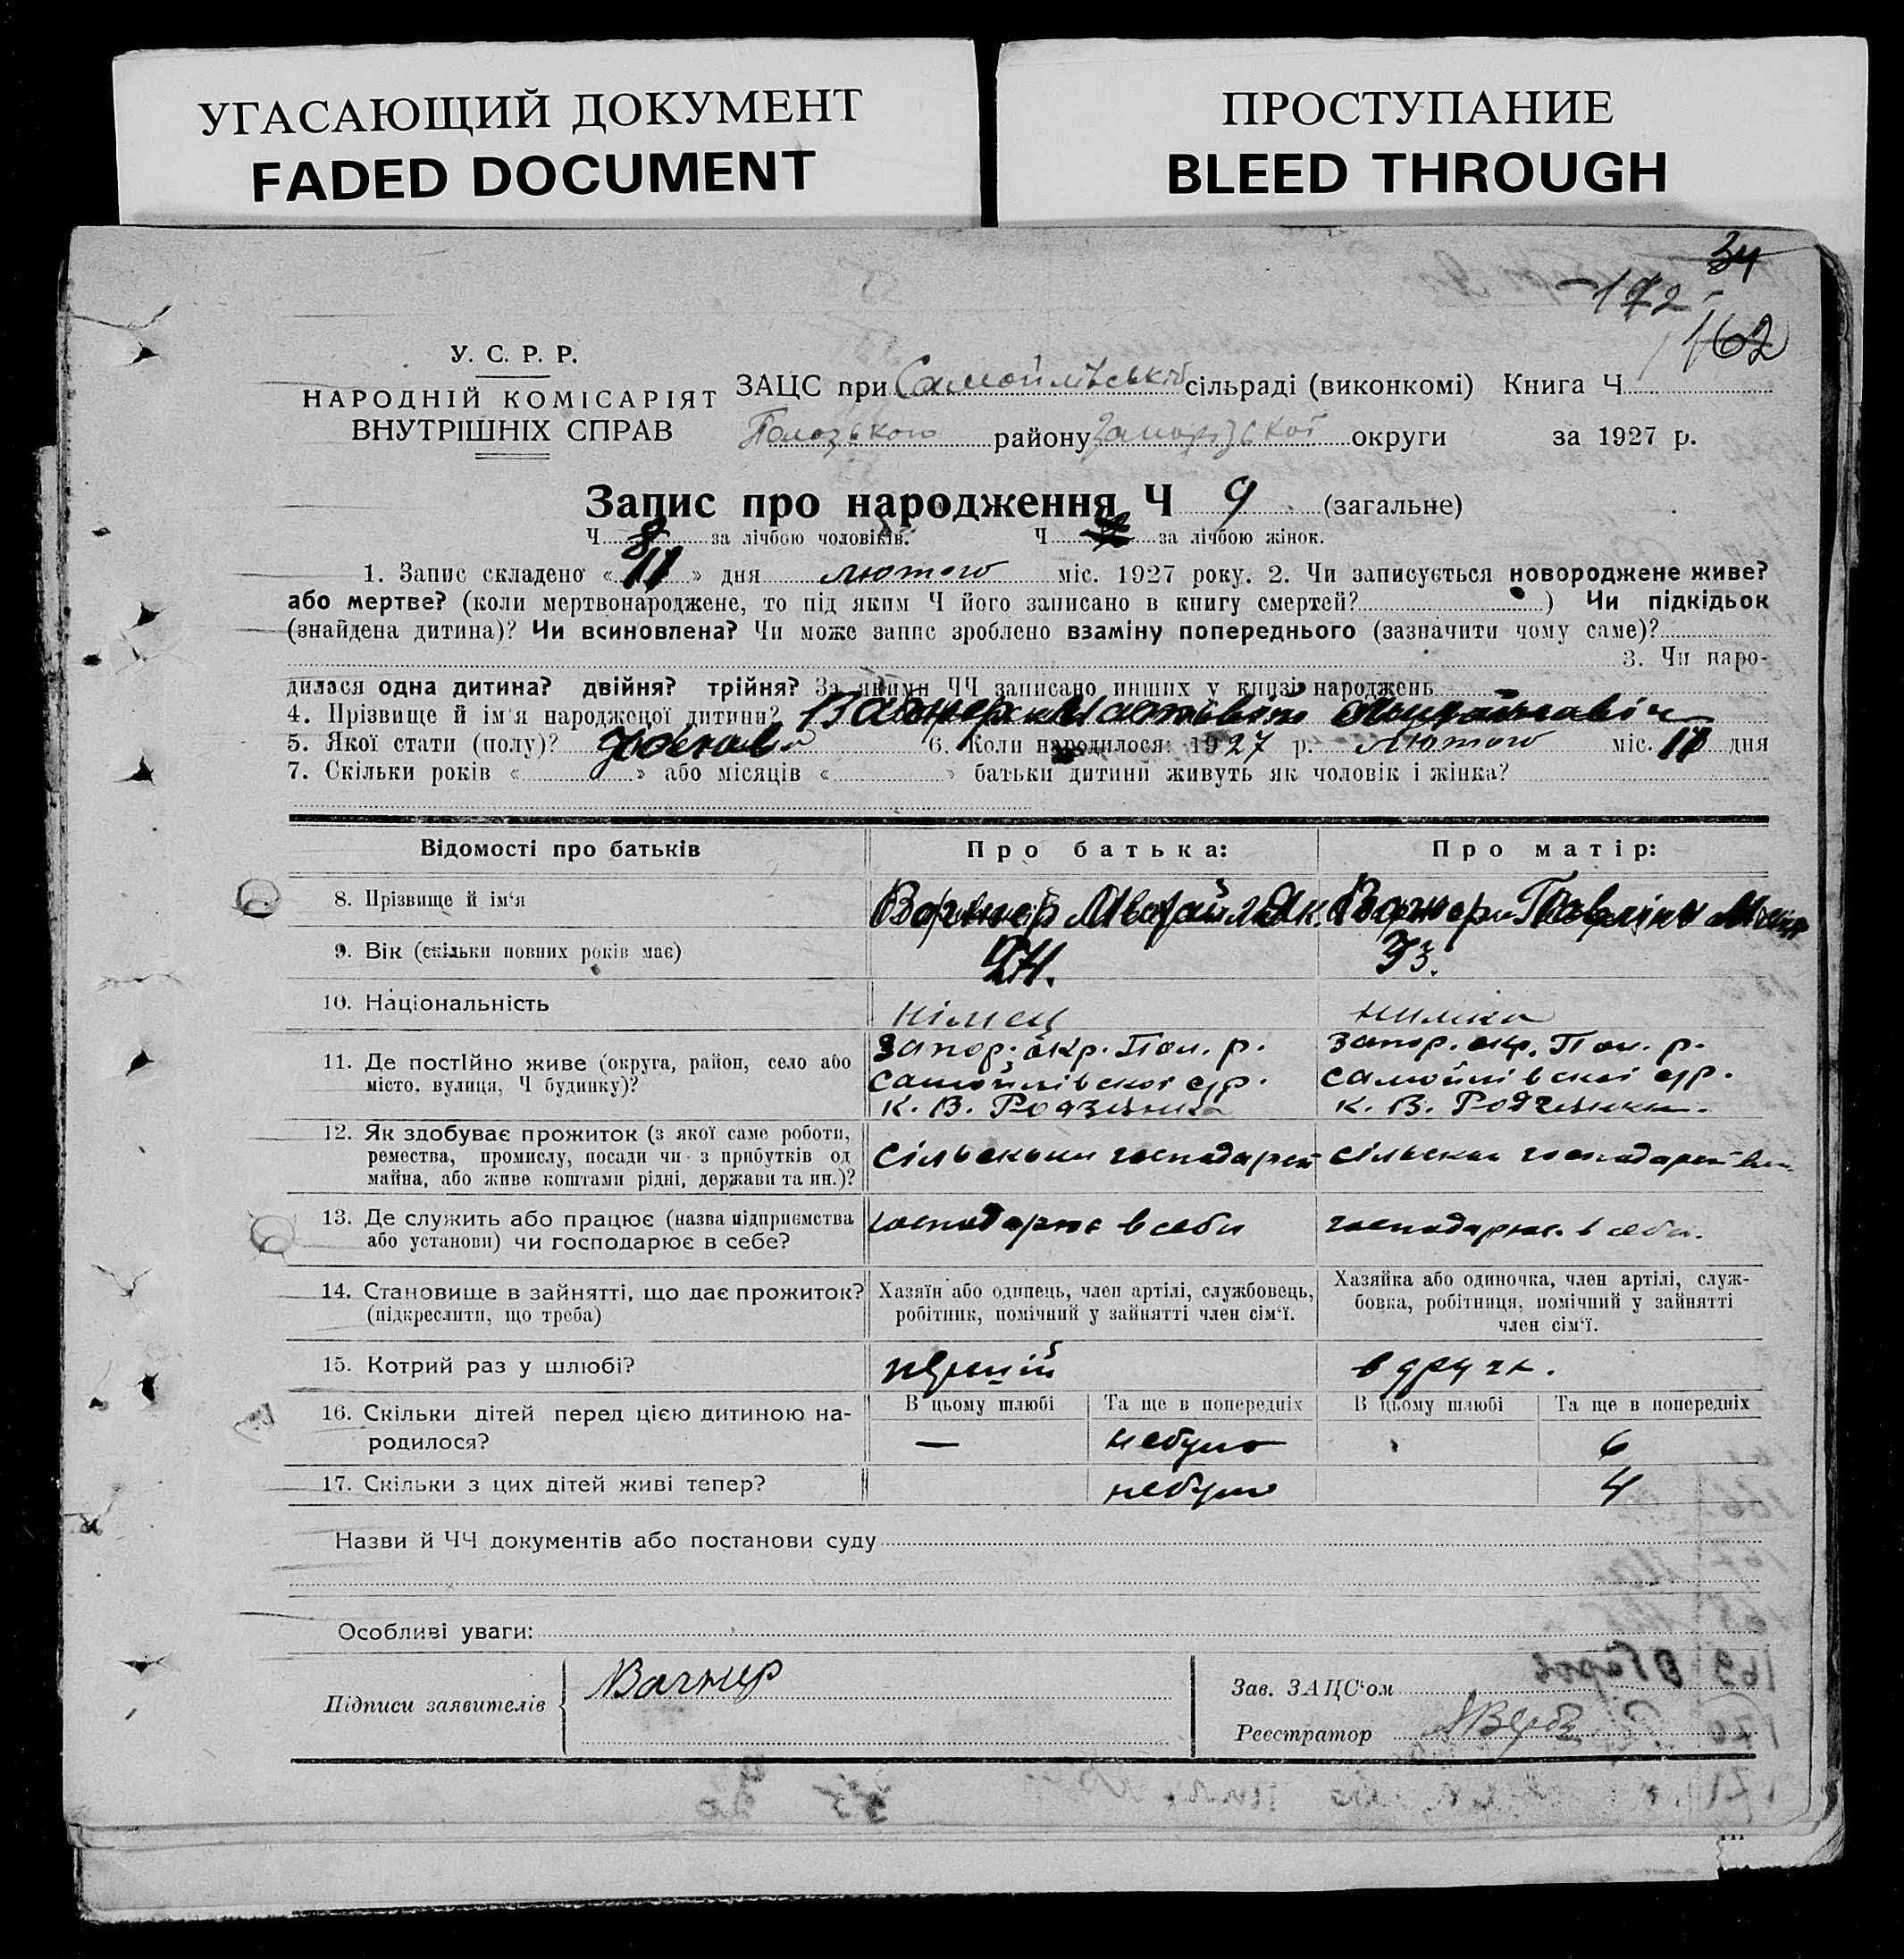 УГАСАЮЩИЙ ДОКУМЕНТ
FADED DOCUMENT
ПРОСТУПАНИЕ
BLEED THROUGH
34
172
162
У. С. Р. Р.
НАРОДНІЙ КОМІСАРІЯТ
ВНУТРІШНІХ СПРАВ
ЗАЦС при Самойлівській сільраді (виконкомі) Книга Ч
Пологзького району Запорізької округи за 1927 р.
Запис про народження Ч 9 (загальне)
Ч 8 за лічбою чоловіків. Ч за лічбою жінок.
1. Запис складено «11» дня лютого міс. 1927 року. 2. Чи записується новороджене живе?
або мертве? (коли мертвонароджене, то під яким Ч його записано в книгу смертей?) Чи підкідьок
(знайдена дитина)? Чи всиновлена? Чи може запис зроблено взаміну попереднього (зазначити чому саме)?
3. Чи наро-
дилася одна дитина? двійня? трійня? За якими ЧЧ записано инших у книзі народжень
4. Прізвище й ім'я народженої дитини?
5. Якої стати (полу)? 6. Коли народилося: 1927 р. лютого міс. дня
7. Скільки років « » або місяців « » батьки дитини живуть як чоловік і жінка?
Відомості про батьків Про батька: Про матір:
8. Прізвище й ім'я Вагнер
9. Вік (скільки повних років має) 24. 33.
10. Національність німец нимка
11. Де постійно живе (округа, район, село або місто, вулиця, Ч будинку)?
Запор. окр. Пол. р.
Самойлівскої с/р.
к. В. Родзянка
Запор. окр. Пол. р.
Самойлівскої с/р.
к. В. Родзянки.
12. Як здобуває прожиток (з якої саме роботи,
ремества, промислу, посади чи з прибутків од
майна, або живе коштами рідні, держави та ин.)?
сільським господарст сільским господарством
13. Де служить або працює (назва підприємства
або установи) чи господарює в себе?
господарює в себи господарює в себи.
14. Становище в зайнятті, що дає прожиток?
(підкреслити, що треба)
Хазяїн або одинець, член артілі, службовець,
робітник, помічний у зайнятті член сім'ї.
Хазяйка або одиночка, член артілі, служ-
бовка, робітниця, помічний у зайнятті
член сім'ї.
15. Котрий раз у шлюбі? перший в друге.
16. Скільки дітей перед цією дитиною на-
родилося?
В цьому шлюбі Та ще в попередніх В цьому шлюбі Та ще в попередніх
— небуло 6
17. Скільки з цих дітей живі тепер? небуло 4
Назви й ЧЧ документів або постанови суду
Особливі уваги:
Підписи заявителів Вагнер
Зав. ЗАЦС'ом
Реєстратор